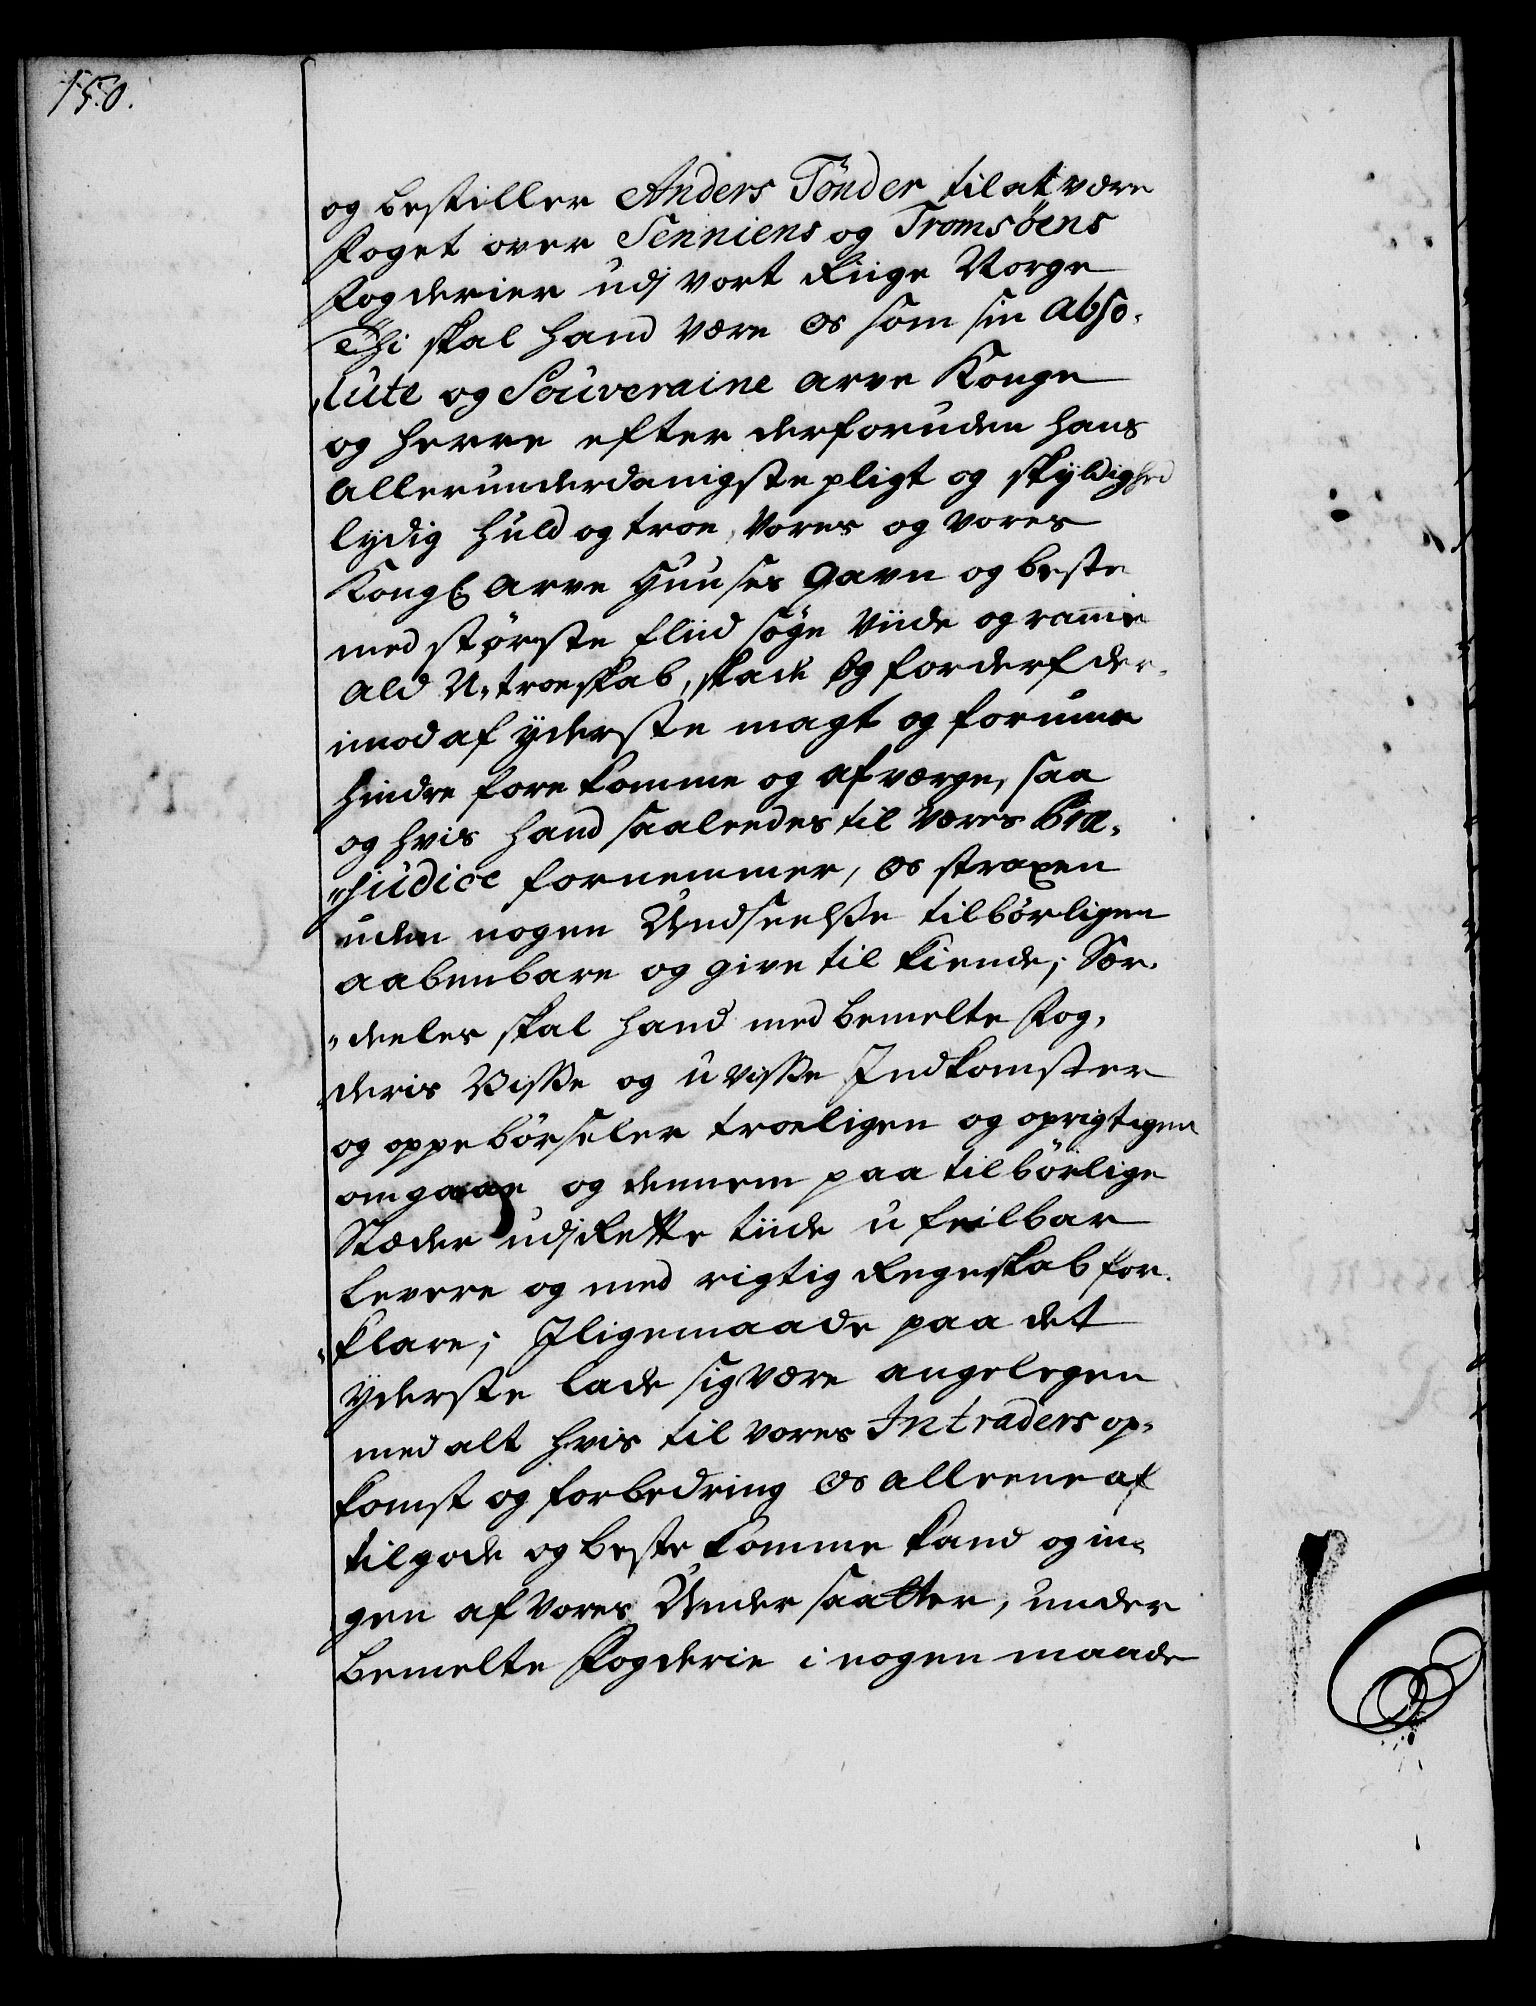 150.
og bestiller Anders Tönder til at være
foget over Senniens og Tromsöens
fogderier udj vort Riige Norge
Thi skal hand være os som sin abso¬
lute og Souveraine arve Konge
og Herre efter derforuden hans
allerunderdanigste pligt og skyldighed
lydig huld og troe, vores og vores
Kongl arve Huuses gavn og beste
med störste fliid söge viide og ramme
ald U-troeskab, skade og forderf der¬
imod af yderste magt og formue
hindre fore komme og afværge, saa
og hvis hand saaleedes til vores Præ¬
judice fornemmer, os straxen
uden nogen Undseelsse tilbörligen
aabenbare og give til kiende; Sær¬
deeles skal hand med bemelte Fog¬
deris Visse og uvisse Indkomster
og oppebörseler troeligen og oprigtigen
omgaae og dennem paa tilbörlige
Stæder udj Rette tiide ufeilbar
levere og med rigtig Regnskab for¬
klare; Iligemaade paa det
yderste lade sig være angelegen
med alt hvis til vores Intraders op¬
komst og forbedring os alleene af
til gode og beste komme kand og in¬
gen af vores Undersaatter, under
bemelte fogderie i nogen maade